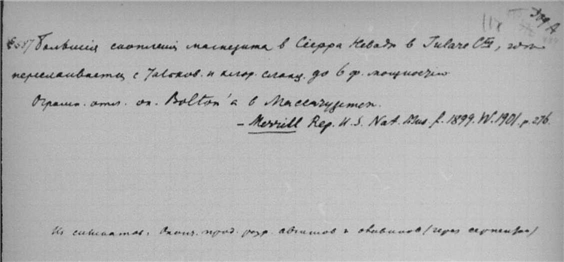 Большия скопления магнезита в Сиерра Невада в Tulare Cty, где
переслаивается с тальков. и хлор. сланц. до 6 ф. мощностью
Огромн. отл. ок. Bolton'а в Массачузетсе.
– Merrill Rep. U.S. Nat. Mus. f. 1899. W. 1901. p. 276.
Из силикатов. Оконч. прод. разр. авгитов и оливинов (через серпентин)